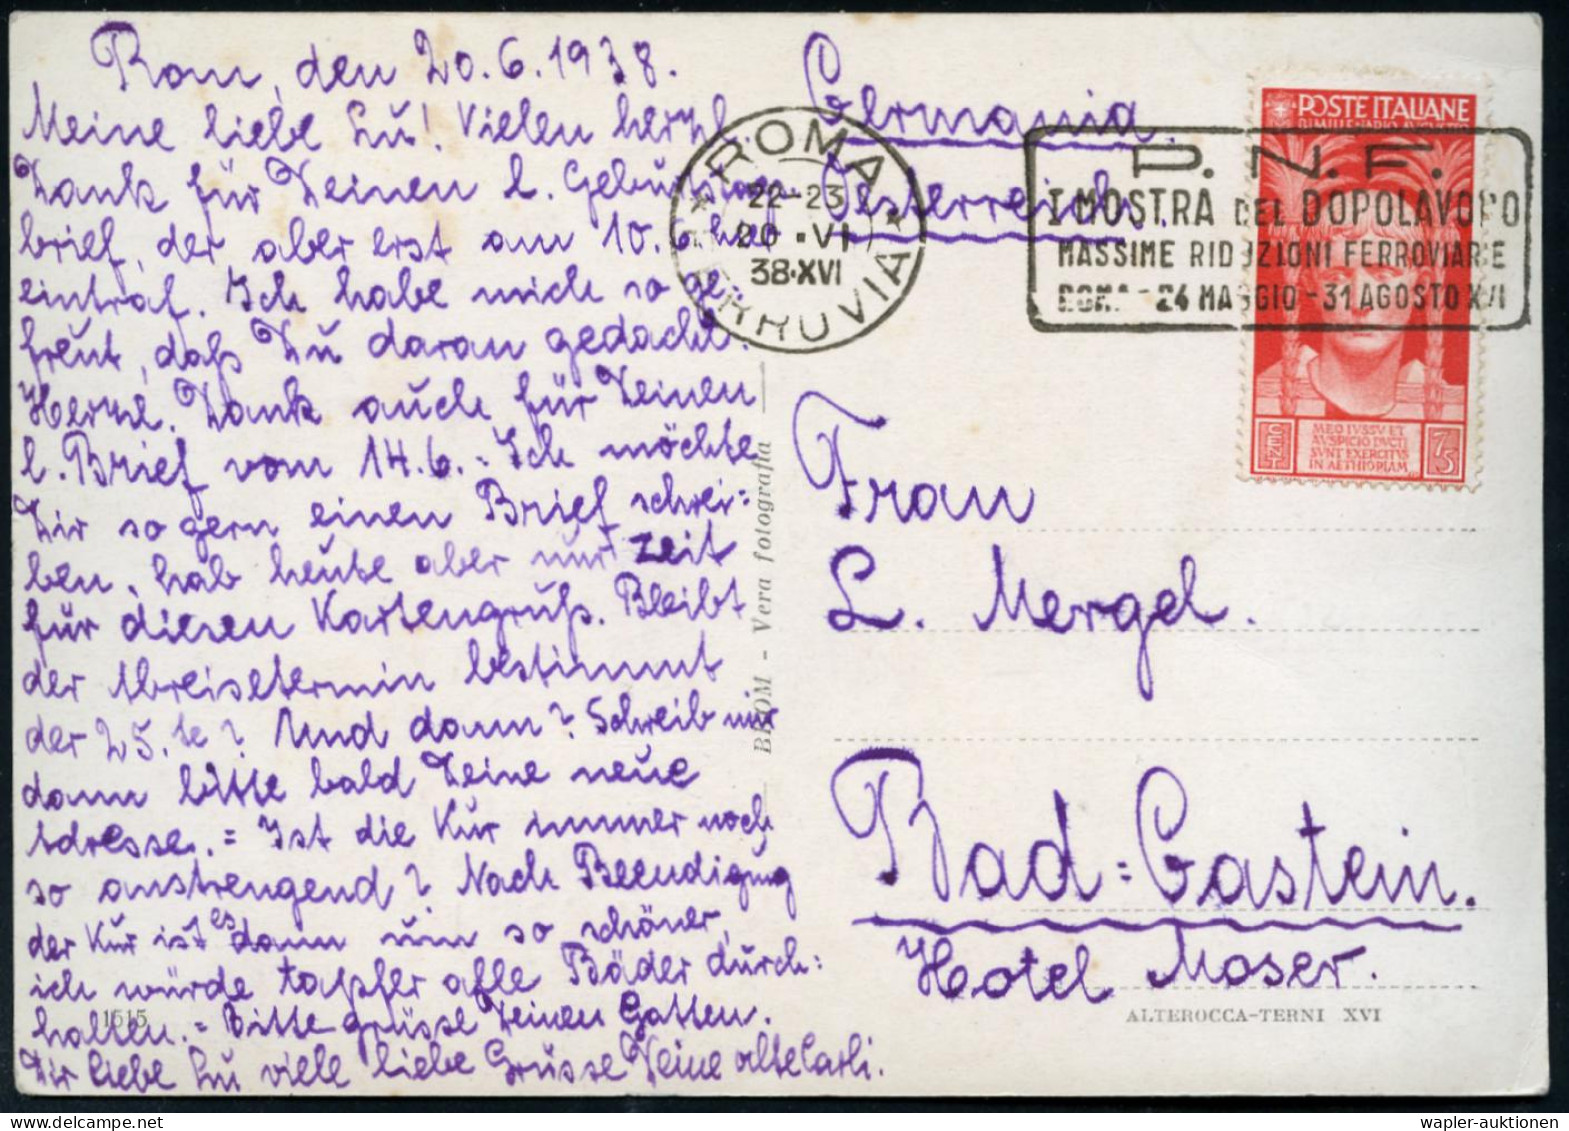 Rom, den 20.6.1938.
Meine liebe Lu! Vielen herzl.
Dank für Deinen l. Geburtstags
brief, der aber erst am 10.6. hier
eintraf. Ich habe mich so ge-
freut, daß Du daran gedacht.
Herzl. Dank auch für Deinen
l. Brief vom 14.6. = Ich möchte
Dir so gern einen Brief schrei=
ben, hab heute aber nur Zeit
für diesen Kartengruß. Bleibt
der Abreisetermin bestimmt
der 25.te? Und dann? Schreib mir
dann bitte bald Deine neue
Adresse. = Ist die Kur immer noch
so anstrengend? Nach Beendigung
der Kur ist es dann um so schöner,
ich würde tapfer alle Bäder durch=
halten. = Bitte grüsse Deinen Gatten.
Dir liebe Lu viele liebe Grüsse Deine alte Carli.
1515
BROM - Vera fotografia
Germania.
Oesterreich.
ROMA
22-23
20.VI
38.XVI
FERROVIA
P.N.F.
I MOSTRA DEL DOPOLAVORO
MASSIME RIDUZIONI FERROVIARIE
ROMA - 24 MAGGIO - 31 AGOSTO XVI
POSTE ITALIANE
BIMILLENARIO AVGVSTEO
MEO IVSSV ET
AVSPICIO DVCTI
SVNT EXERCITVS
IN AETHIOPIAM
CENT 75
Frau
L. Mergel.
Bad=Gastein.
Hotel Moser.
ALTEROCCA-TERNI XVI
wapler-auktionen